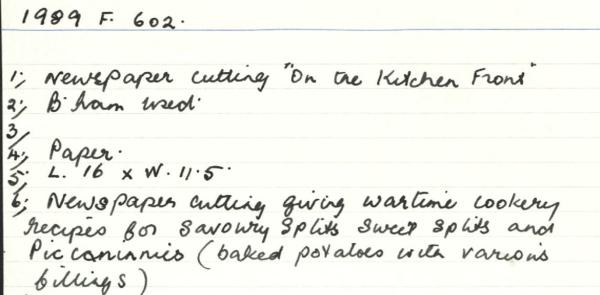 1989 F. 602.
1; Newspaper cutting "On the Kitchen Front"
2; B'ham used.
3;
4; Paper.
5; L. 16 x W. 11.5
6; Newspaper cutting giving wartime cookery
recipes for Savoury Splits Sweet Splits and
Piccaninnis (baked potatoes with various
fillings)